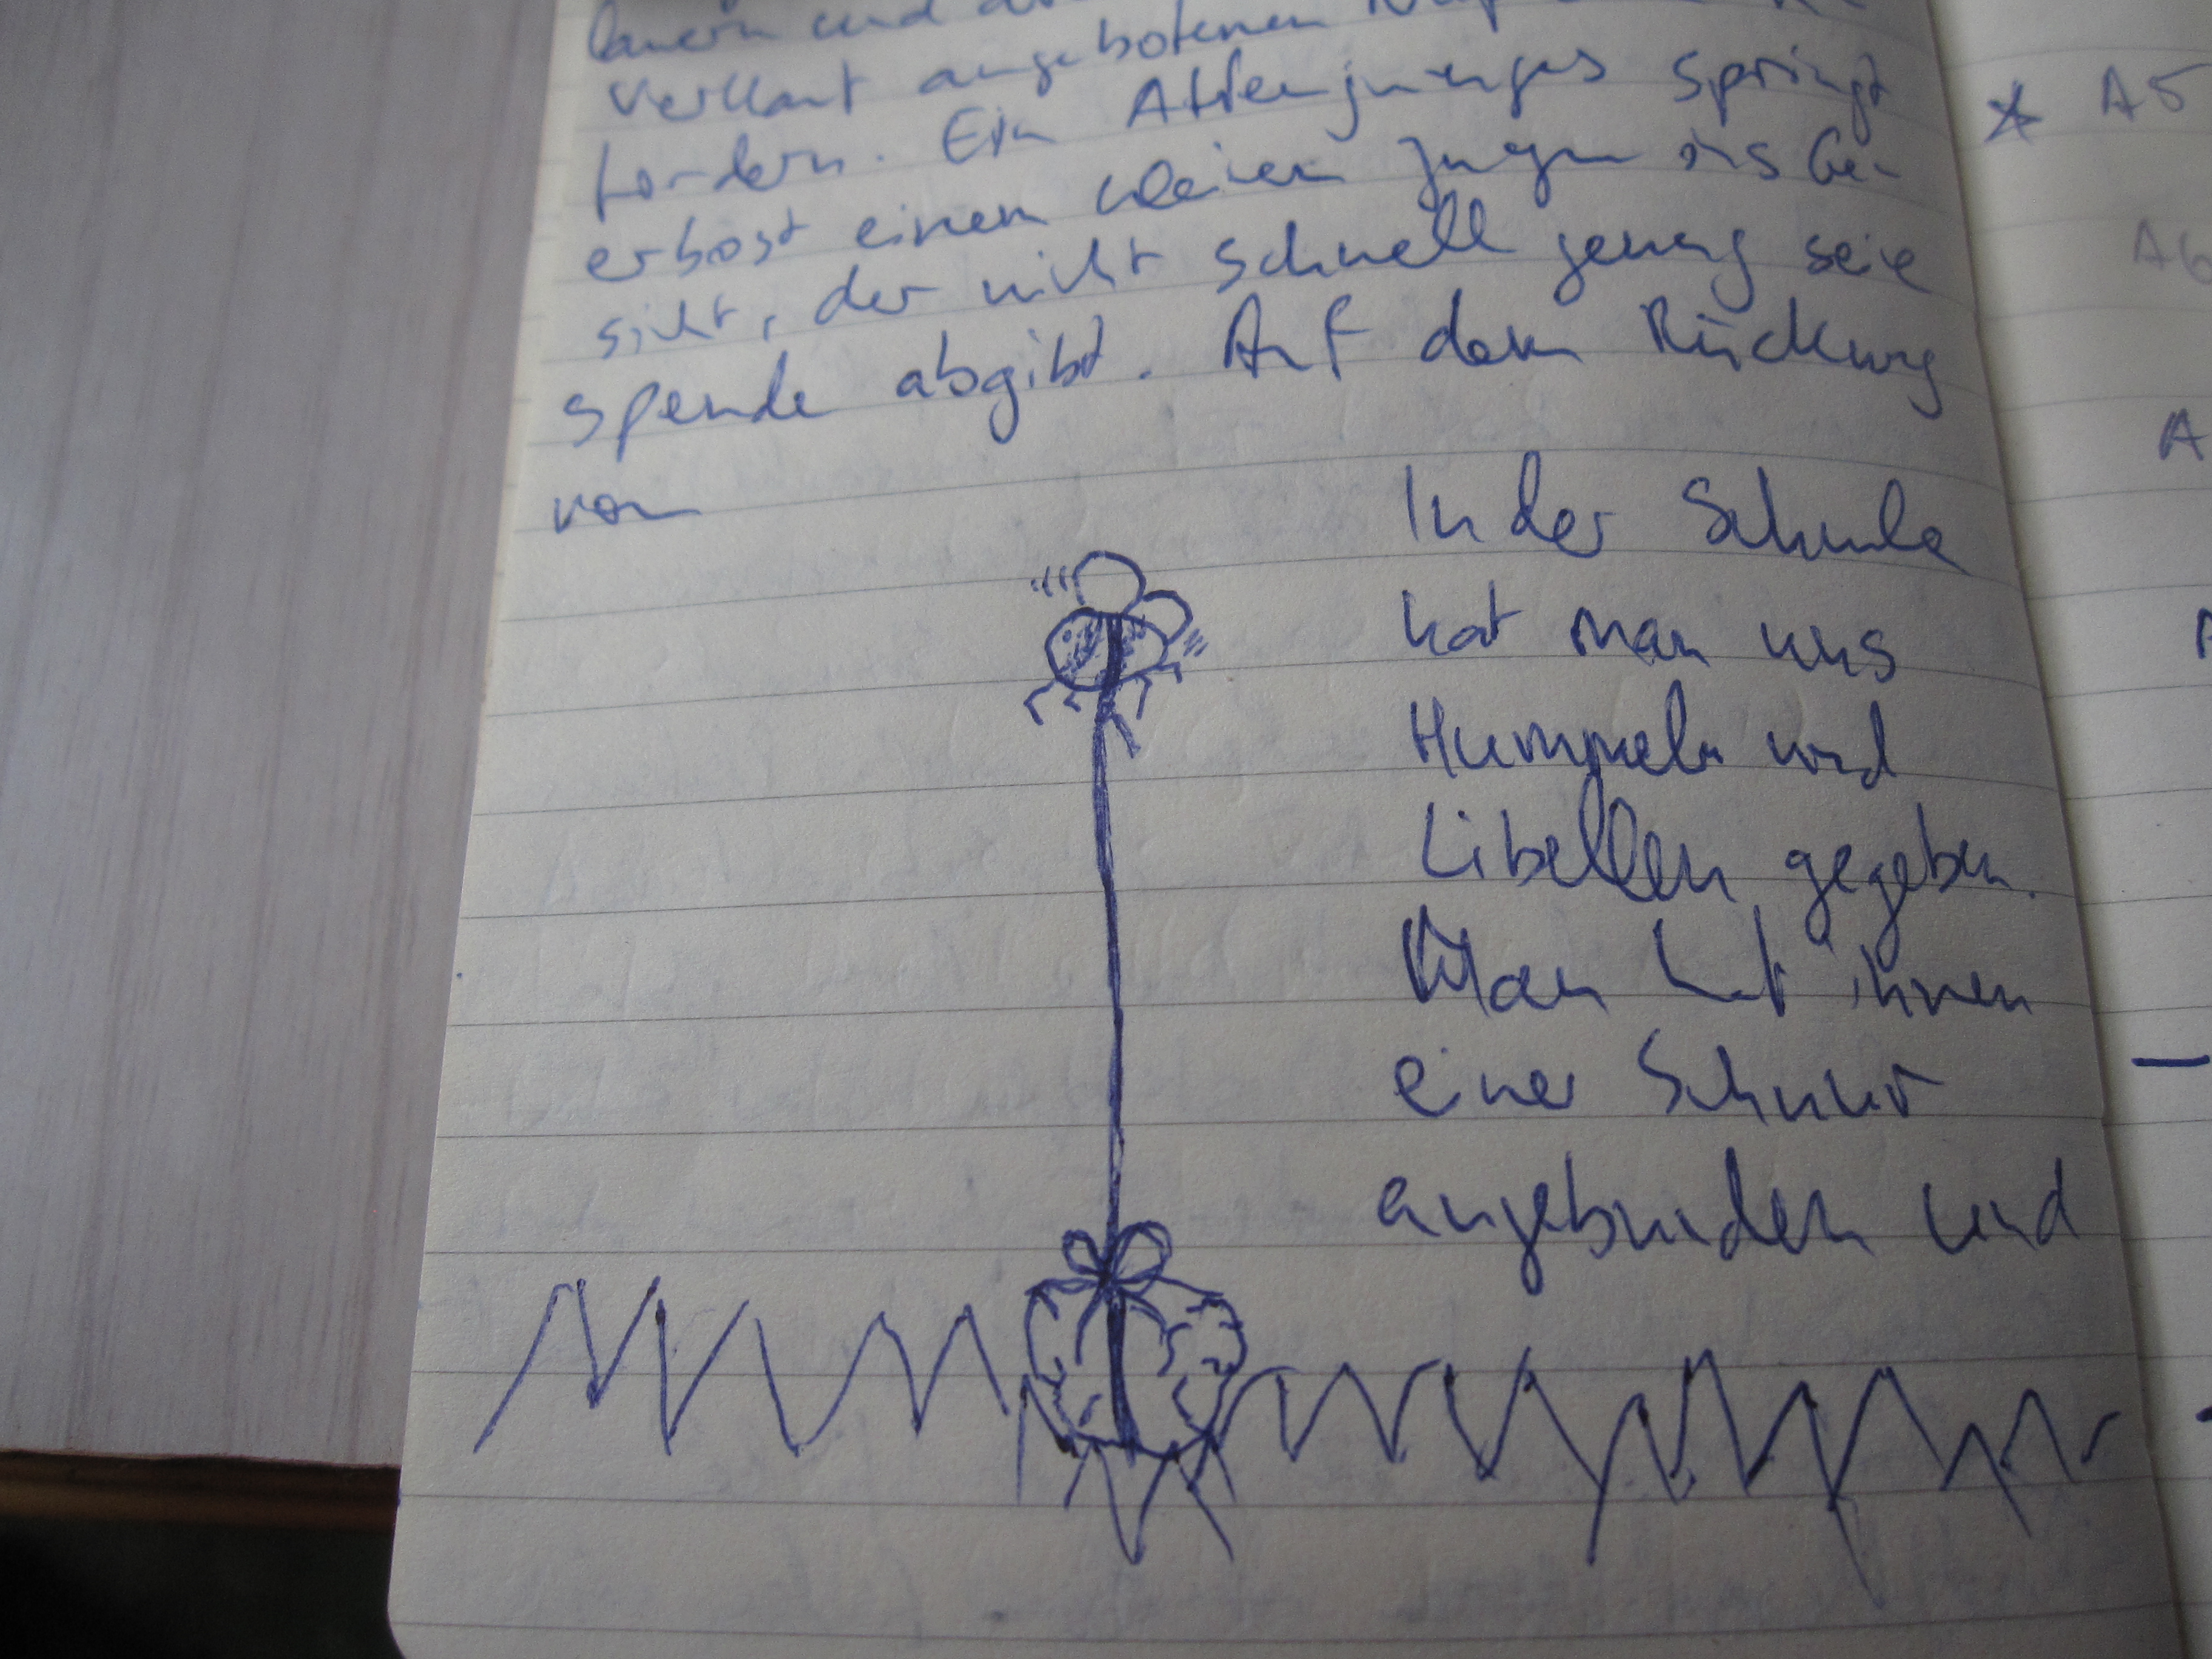 lauern und
Verkauf angebotenen
fordern. Ein Affenjunges springt
erbost einem kleinen Jungen ins Ge-
sicht, der nicht schnell genug seie
spende abgibt. Auf dem Rückweg
von
In der Schule
hat man uns
Hummeln und
Libellen gegeben.
Man hat ihnen
einer Schnur
angebunden und
A5
A6
A